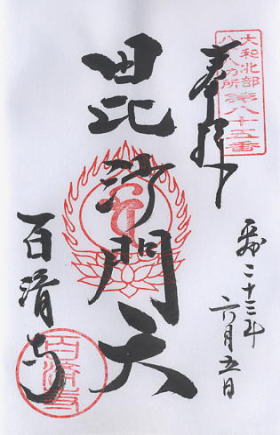 奉拝
大和北部
八十八カ所
第八十五番
毘沙門天
百済寺
平成二十三年
六月五日
百済寺